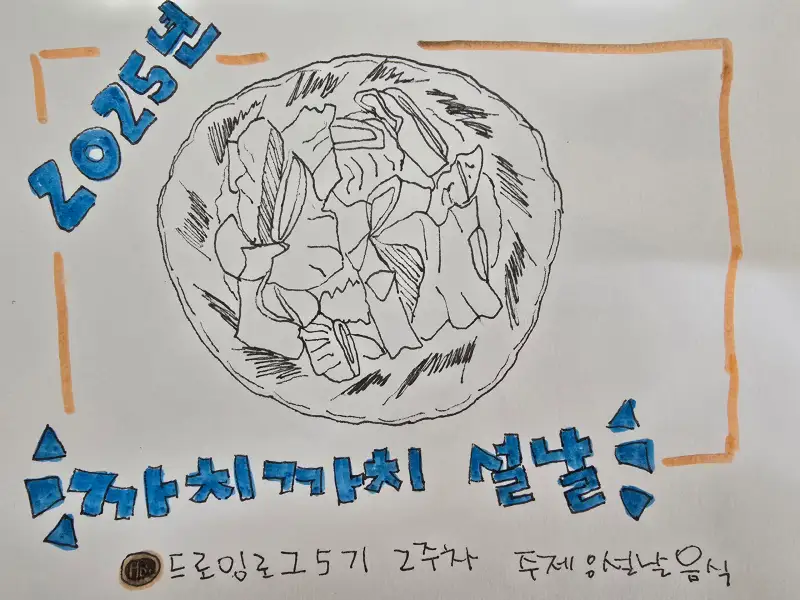 2025년
까치까치 설날
드로잉로그5기 2주차 주제 : 설날음식